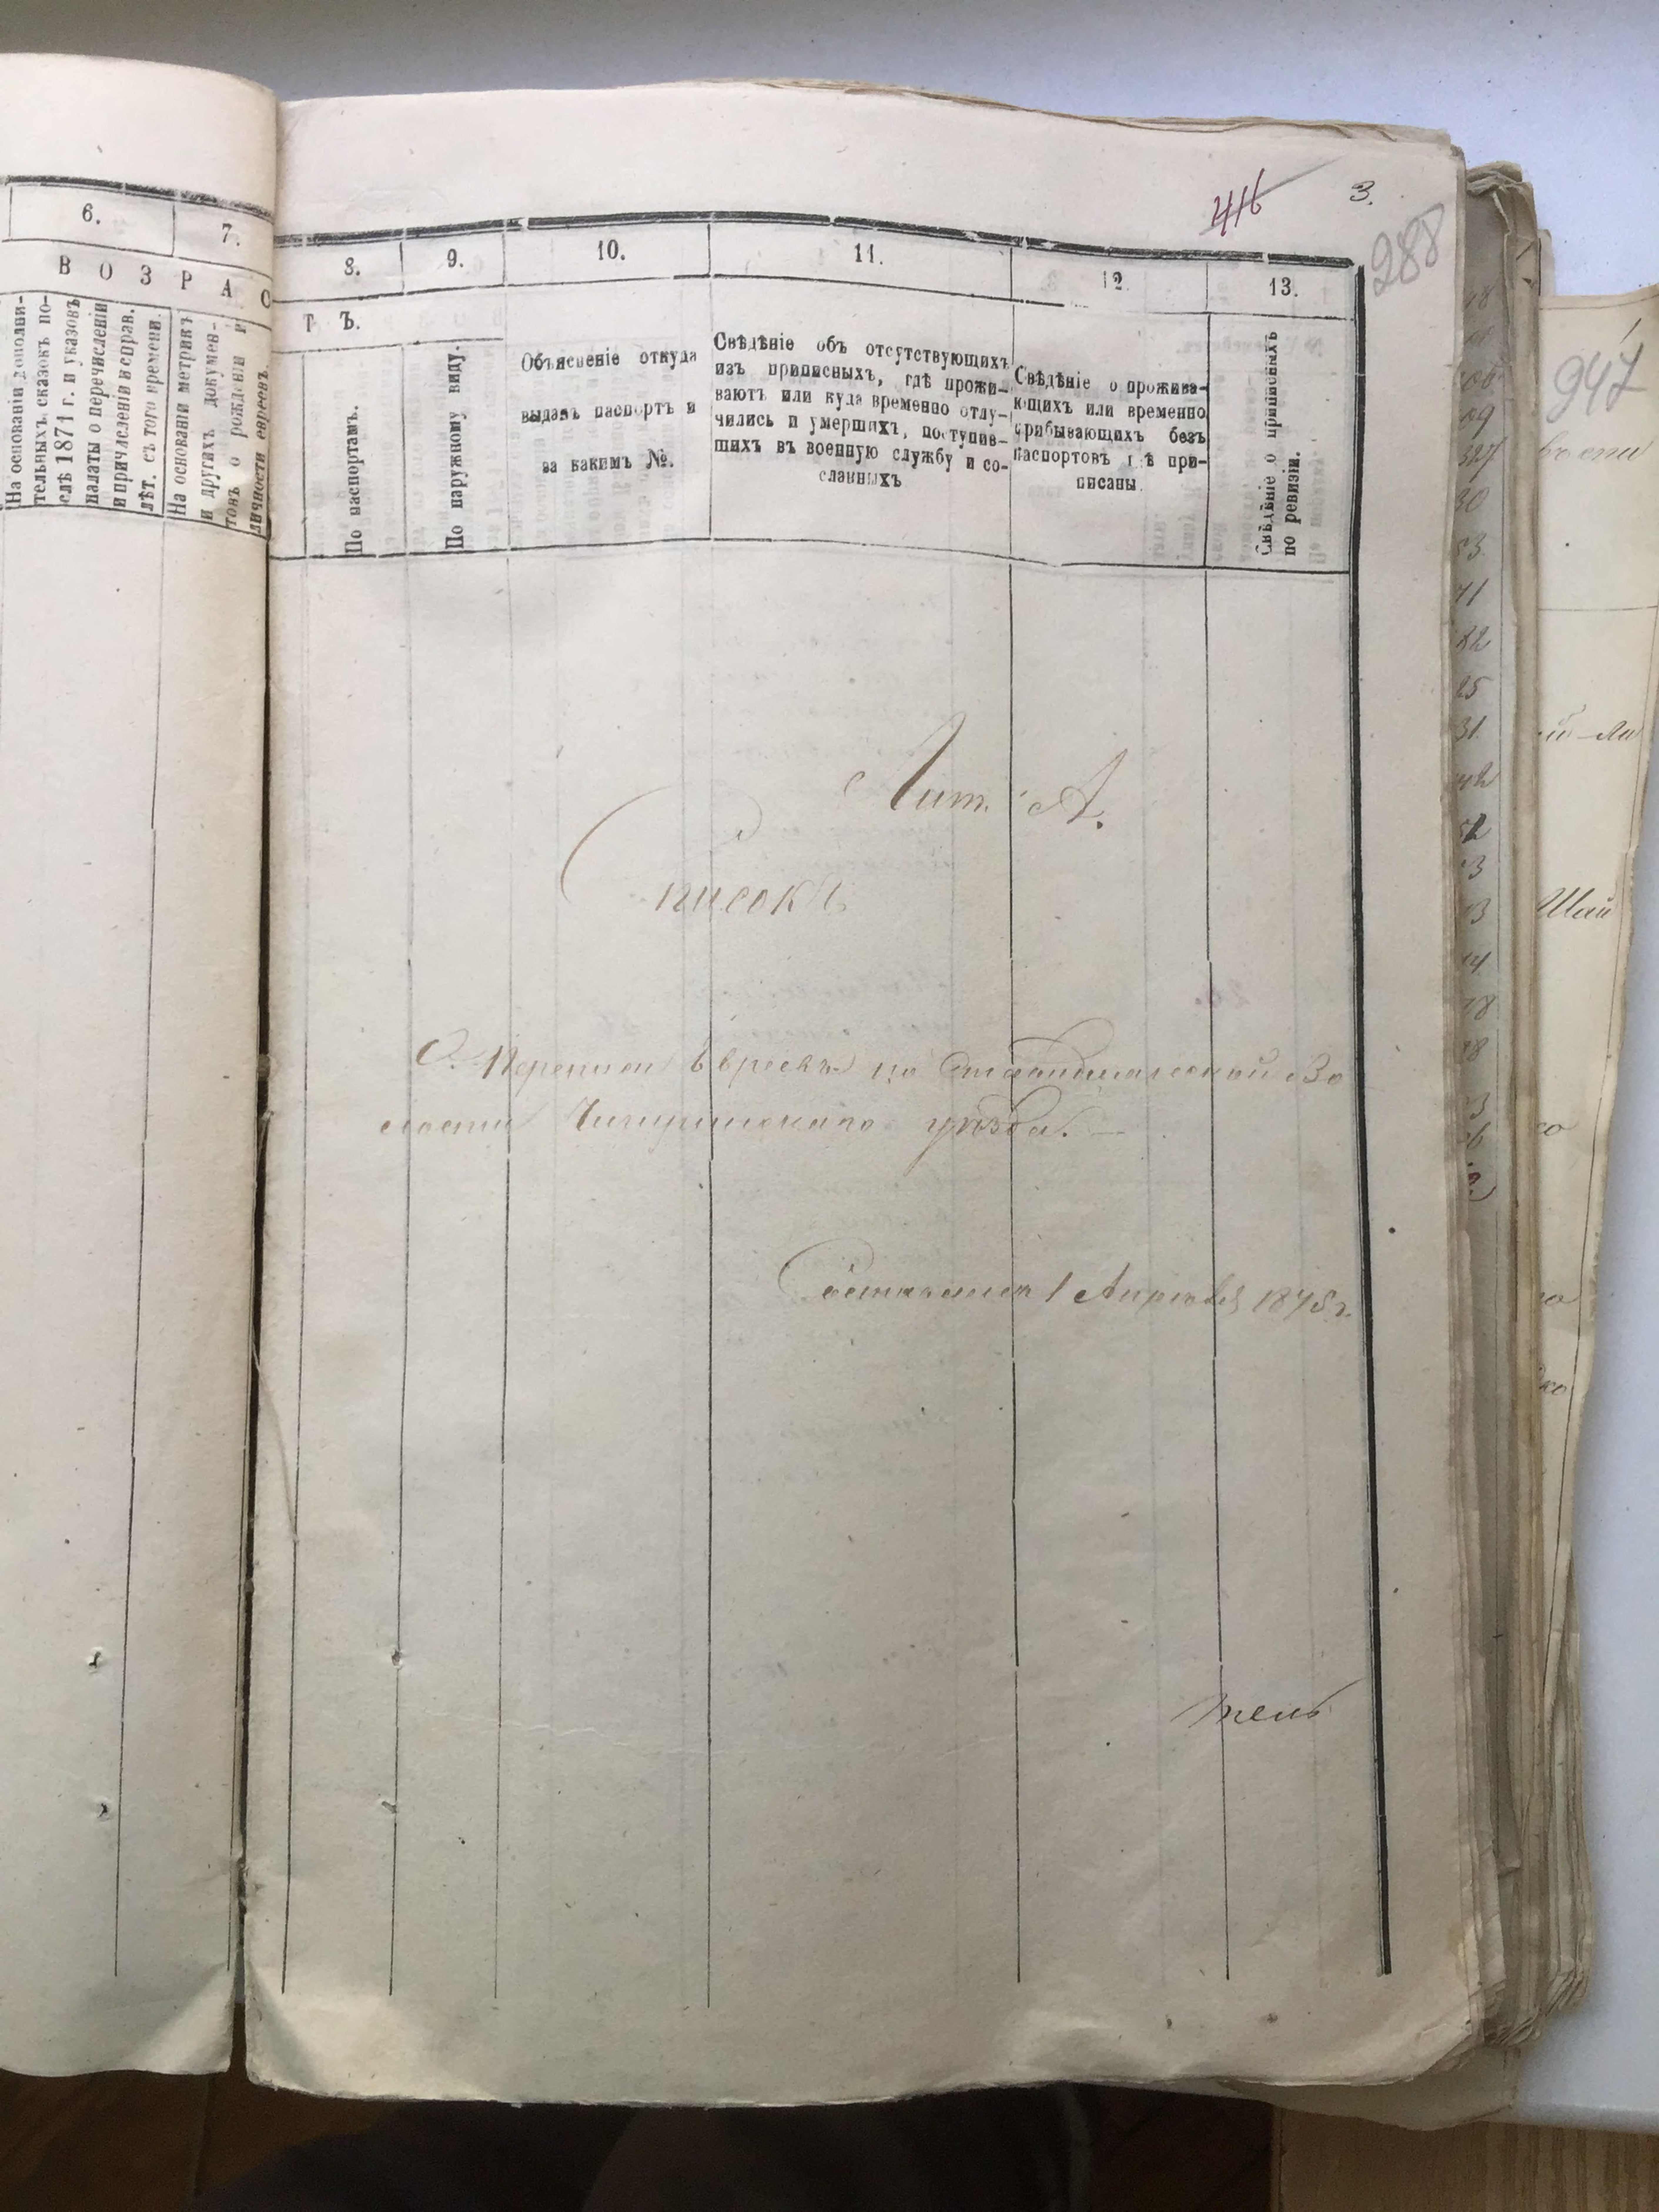 416
3.
288
6.
7.
8.
9.
10.
11.
12
13.
В О З Р А С
Т Ъ.
На основаніи дополни-
тельныхъ сказокъ по-
слѣ 1871 г. и указовъ
палаты о перечисленіи
и причисленіи в справ.
лѣт. съ того времени.
На основани метрикъ
и другихъ докумен-
товъ о рожденіи и
личности евреевъ.
По паспортамъ.
По наружному виду.
Объясненіе откуда
выданъ паспортъ и
за какимъ №.
Свѣдѣніе объ отсутствующихъ
изъ приписныхъ, гдѣ прожи-
ваютъ или куда временно отлу-
чились и умершихъ, поступив-
шихъ въ военную службу и со-
сланныхъ
Свѣдѣніе о прожива-
ющихъ или временно
прибывающихъ безъ
паспортовъ гдѣ при-
писаны
Свѣдѣніе о приписныхъ
по ревизіи.
Лит. А.
Списокъ
О. Переписи Евреевъ по Во
лости Чигиринскаго уѣзда.
1 Апрѣля 1875 г.
тель
947
Шай